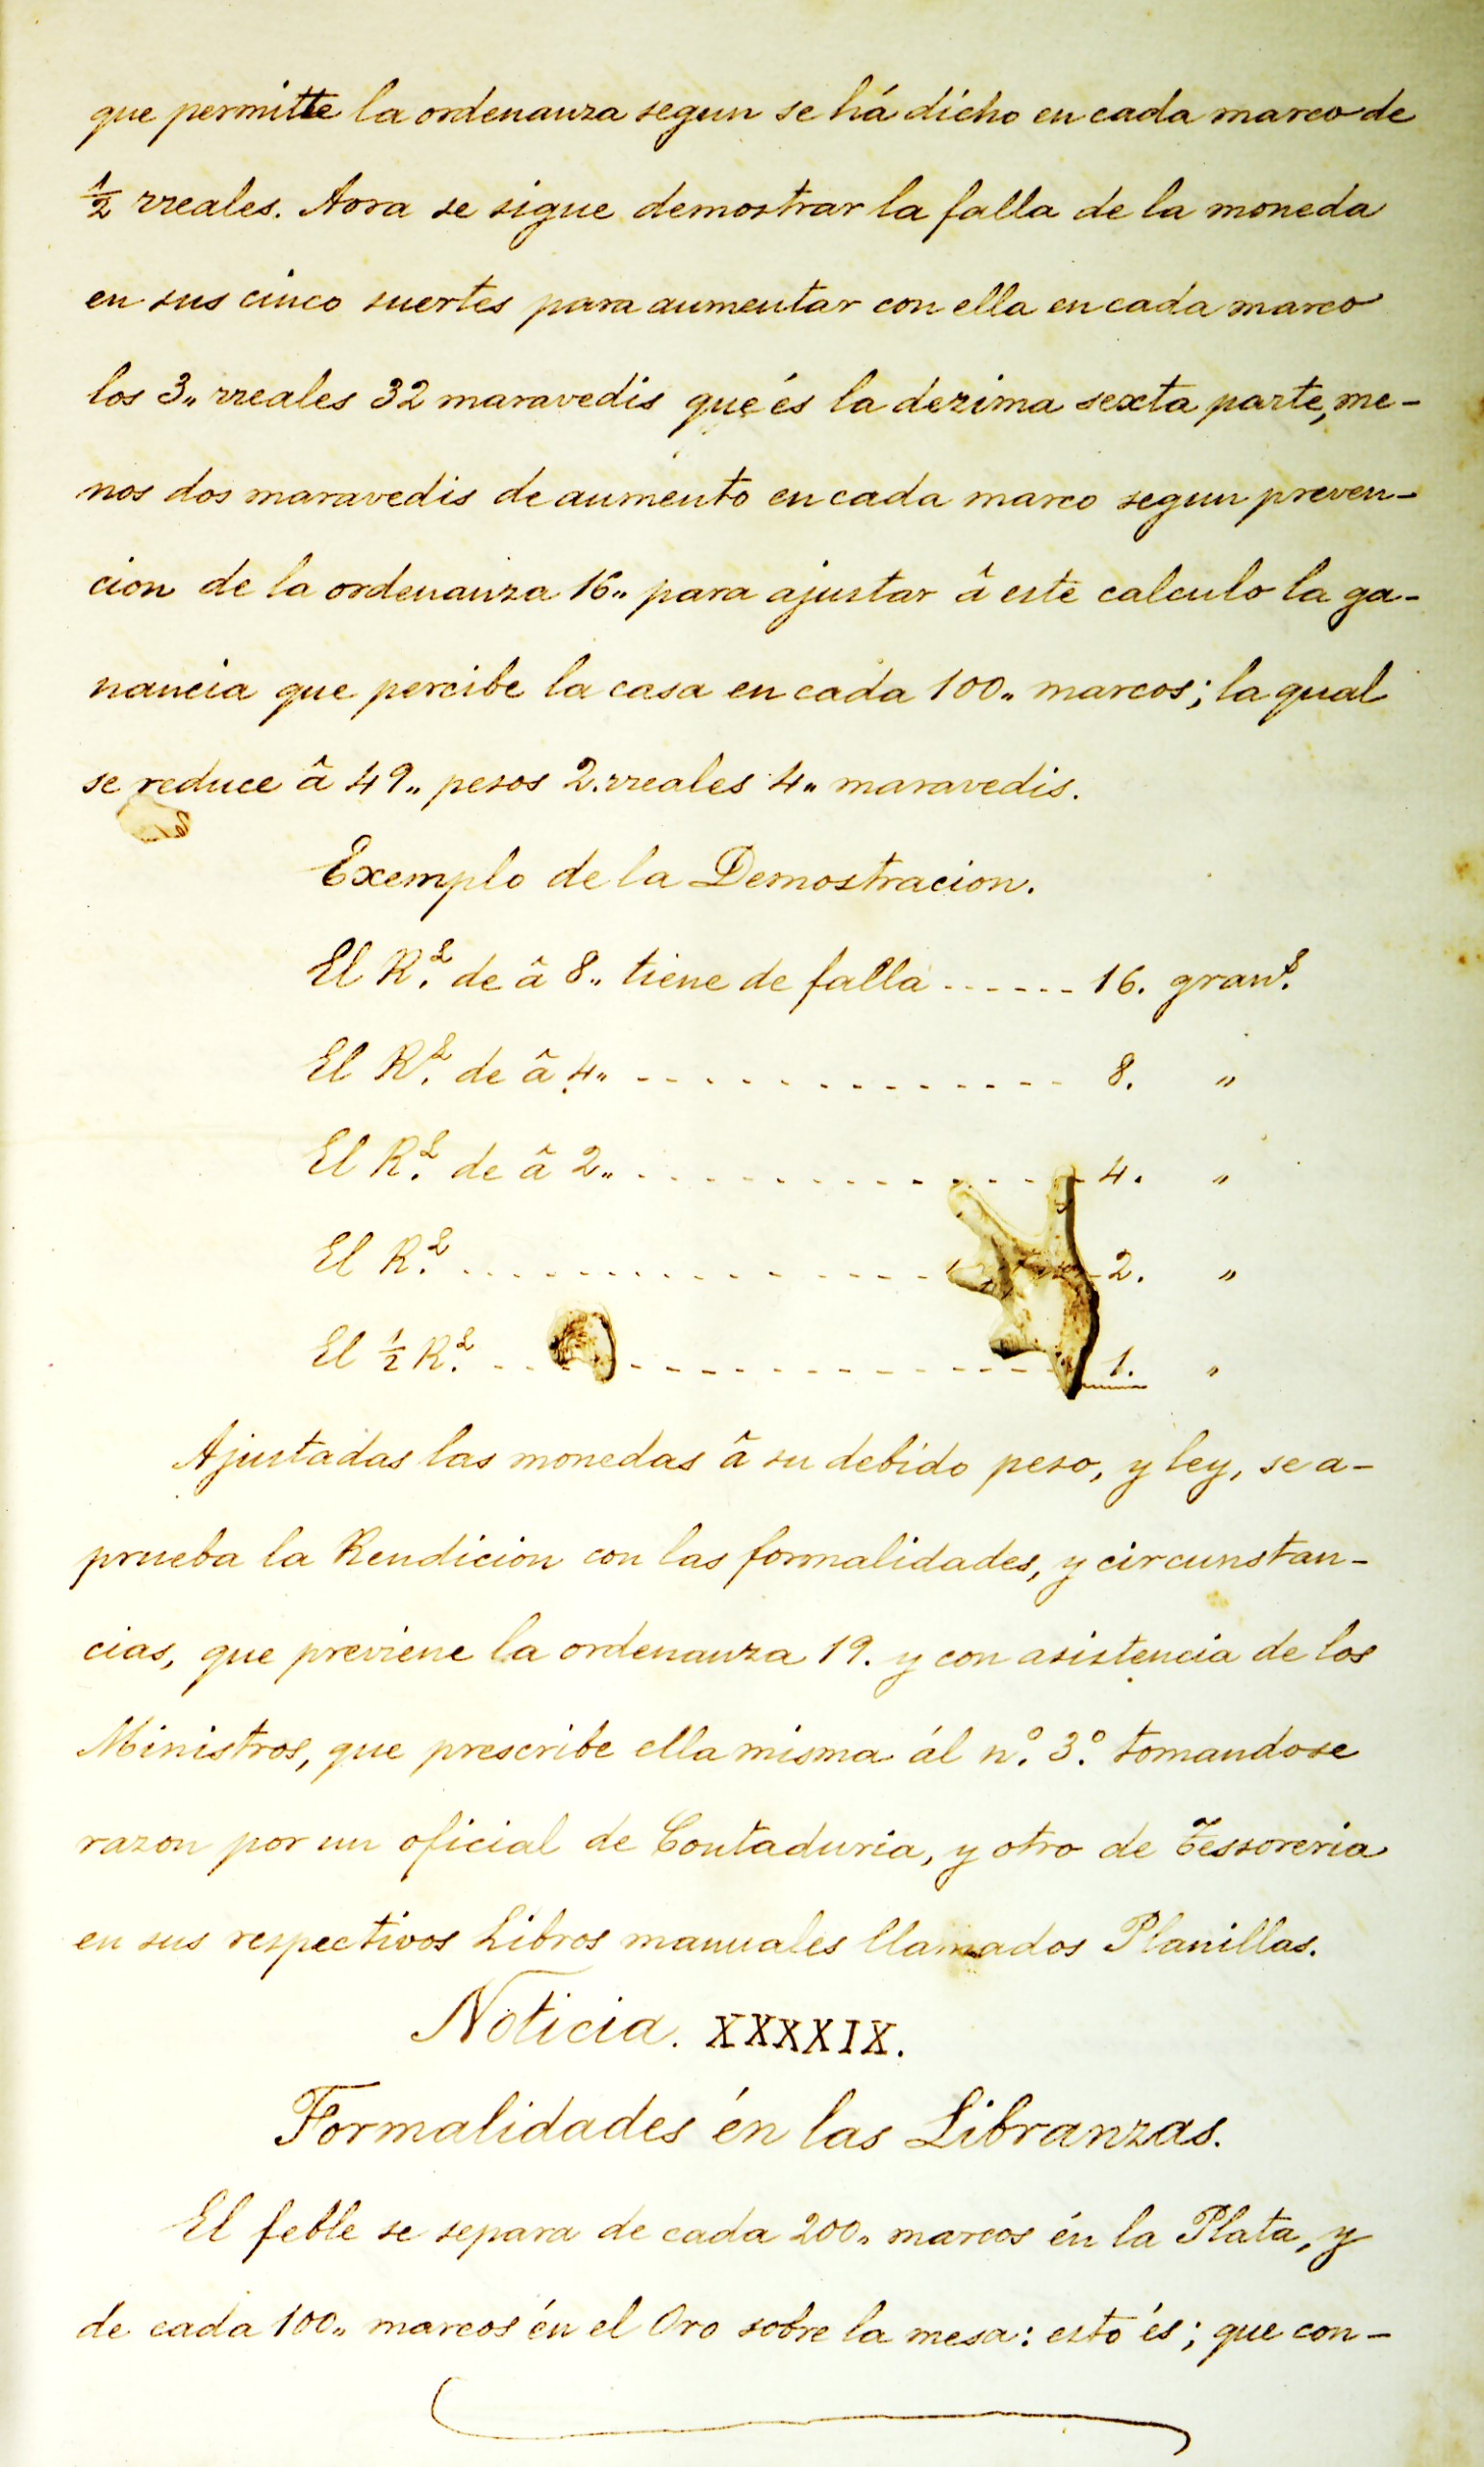 que permitte la ordenanza segun se há dicho en cada marco de
½ rreales. Aora se sigue demostrar la falla de la moneda
en sus cinco suertes para aumentar con ella en cada marco
los 3,, rreales 32 maravedis que és la dezima sexta parte, me-
nos dos maravedis de aumento en cada marco segun preven-
cion de la ordenanza 16,, para ajustar â este calculo la ga-
nancia que percibe la casa en cada 100,, marcos; la qual
se reduce â 49,, pesos 2. rreales 4,, maravedis.
Exemplo de la Demostracion.
El R.l de â 8,, tiene de falla ------ 16. gran.s
El R.l de â 4,, -------------- 8. ,,
El R.l de â 2,, -------------- 4. ,,
El R.l -------------- 2. ,,
El ½ R.l -------------- 1. ,,
Ajustadas las monedas â su debido peso, y ley, se a-
prueba la Rendicion con las formalidades, y circunstan-
cias, que previene la ordenanza 19. y con asistencia de los
Ministros, que prescribe ella misma ál n.º 3.º tomandose
razon por un oficial de Contaduria, y otro de Tessoreria
en sus respectivos Libros manuales llamados Planillas.
Noticia. XXXXIX.
Formalidades én las Libranzas.
El feble se separa de cada 200,, marcos én la Plata, y
de cada 100,, marcos én el Oro sobre la mesa: esto és; que con-